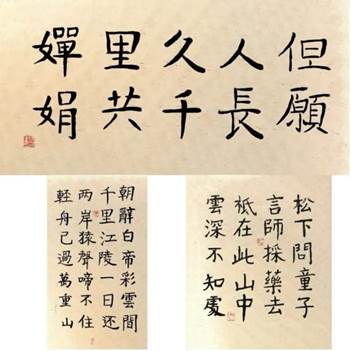 但願
人長
久千
里共
嬋娟
朝辭白帝彩雲間
千里江陵一日还
两岸猿聲啼不住
軽舟已過萬重山
松下問童子
言師採藥去
祗在此山中
雲深不知處